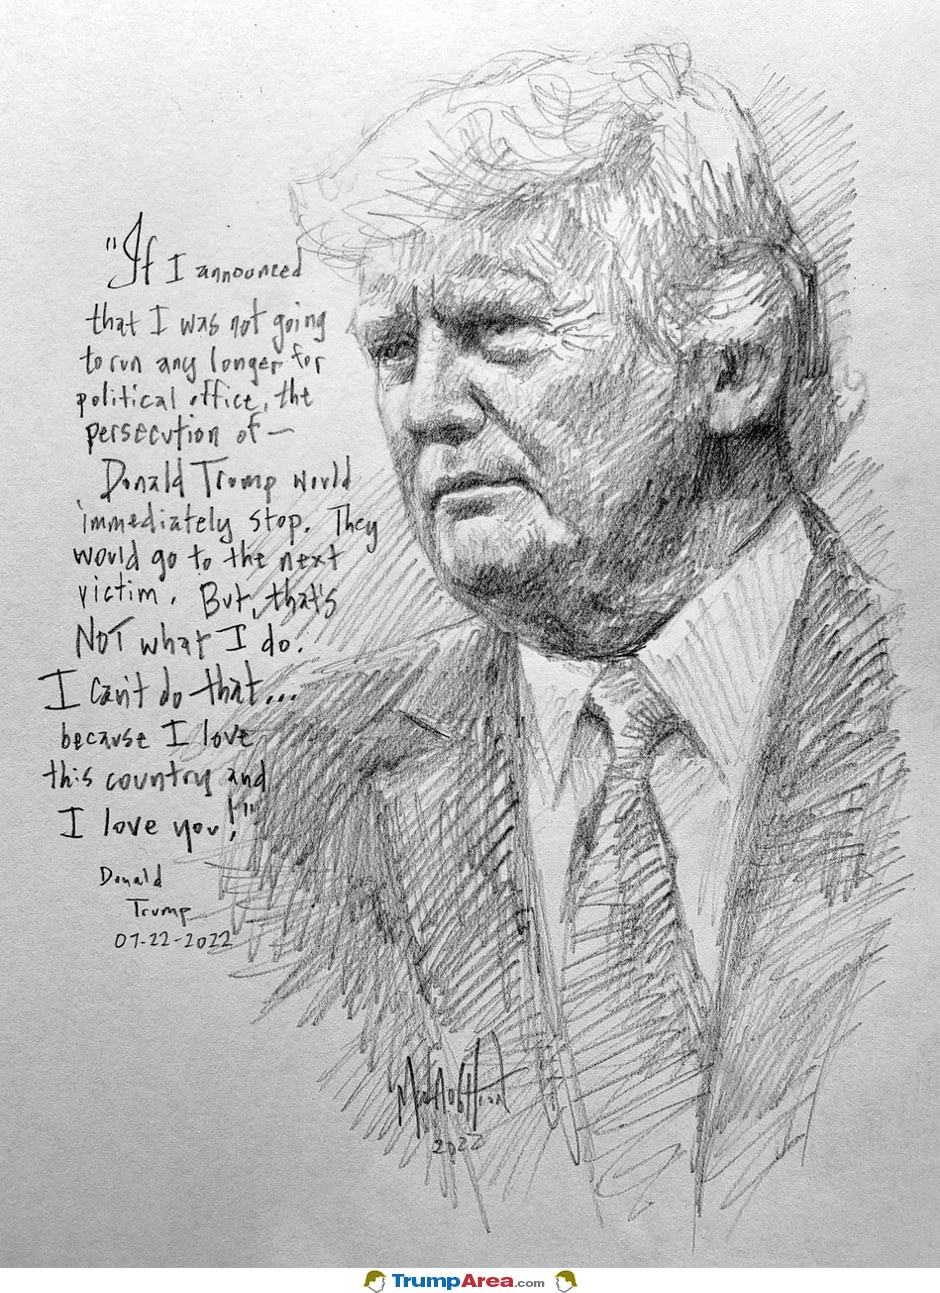 "If I announced
that I was not going
to run any longer for
political office, the
persecution of —
Donald Trump would
immediately stop. They
would go to the next
victim. But, that's
NOT what I do.
I can't do that...
because I love
this country and
I love you!"
Donald
Trump
07-22-2022
2022
TrumpArea.com